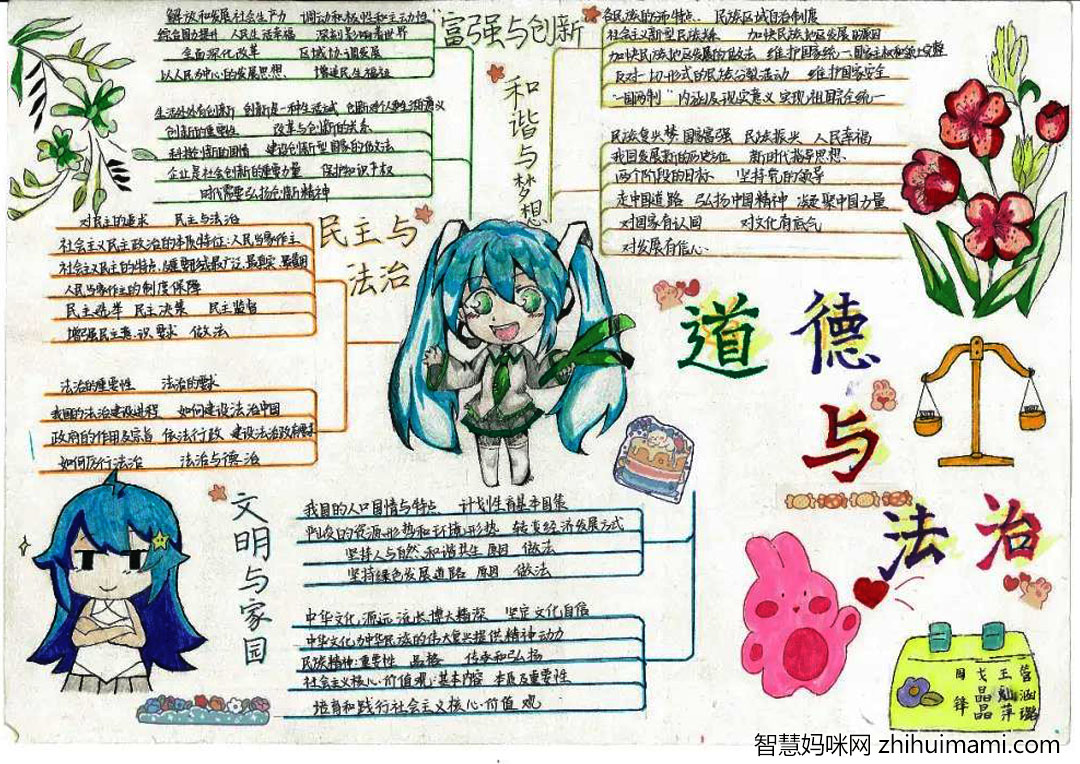 富强与创新
解放和发展社会生产力 调动积极性和主动性
综合国力提升 人民生活幸福 深刻影响着世界
全面深化改革 区域协调发展
以人民为中心的发展思想、 增进民生福祉
生活处处有创新 创新是一种生活方式
创新的重要性 改革与创新的关系
科技创新的国情 建设创新型国家的做法
企业是社会创新的重要力量 保护知识产权
时代需要弘扬创新精神
和谐与梦想
民族区域自治制度
社会主义新型民族关系 加快民族地区发展的原因
加快民族地区发展的做法 维护国家统一
反对一切形式的民族分裂活动 维护国家安全
"一国两制"内涵及现实意义 实现祖国完全统一
民族复兴梦 国家富强 民族振兴 人民幸福
我国发展新的历史方位 新时代指导思想、
两个阶段的目标 坚持党的领导
走中国道路 弘扬中国精神 凝聚中国力量
对国家有认同 对文化有底气
对发展有信心
民主与法治
对民主的追求 民主与法治
社会主义民主政治的本质特征:人民当家作主
人民当家作主的制度保障
民主选举 民主决策 民主监督
增强民主意识 要求 做法
法治的重要性 法治的要求
我国的法治建设进程 如何建设法治中国
政府的作用及宗旨 依法行政 建设法治政府
如何厉行法治 法治与德治
文明与家园
我国的人口国情与特点、 计划生育基本国策
资源形势和环境形势 转变经济发展方式
坚持人与自然和谐共生 原因 做法
坚持绿色发展道路 原因 做法
中华文化,源远流长、博大精深 坚定文化自信
中华文化为中华民族的伟大复兴提供精神动力
民族精神:重要性 品格 传承和弘扬
社会主义核心价值观:基本内容 本质及重要性
培育和践行社会主义核心价值观
道德与法治
周锋
戈晶晶
王灿萍
管涵璐
智慧妈咪网 zhihuimami.com